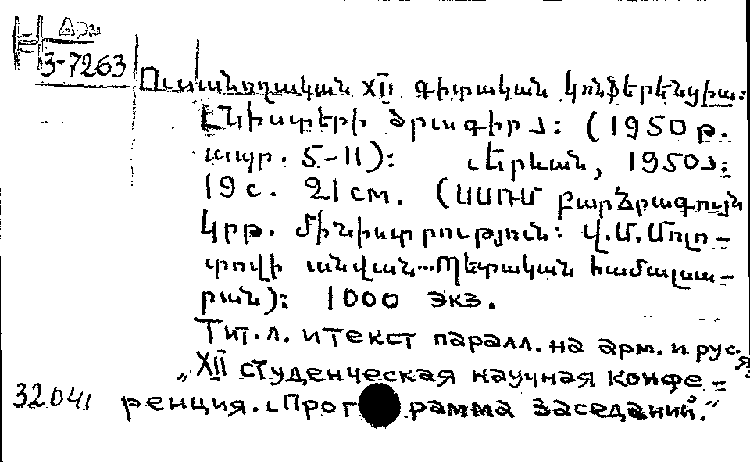 Арм
3-7263
Ուսանողական XII գիտական կոնֆերենցիա:
Նիստերի ծրագիր: (1950 թ.
ապր. 5-11): Երևան, 1950:
19 с. 21 см. (ՍՍՌՄ բարձրագույն
կրթ. մինիստրություն: Վ.Մ.Մոլո-
տովի անվան Պետական համալսա-
րան): 1000 экз.
Тит.л. и текст паралл. на арм. и рус.яз.
„XII студенческая научная конфе-
32041 ренция. Программа заседаний."